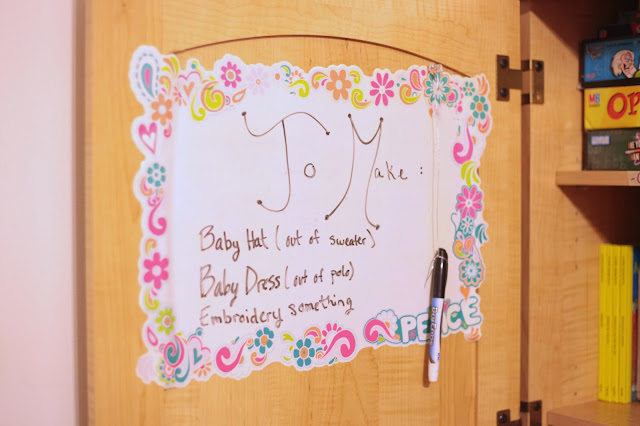 To Make:
Baby Hat (out of sweater)
Baby Dress (out of polo)
Embroidery something
PEACE
OP